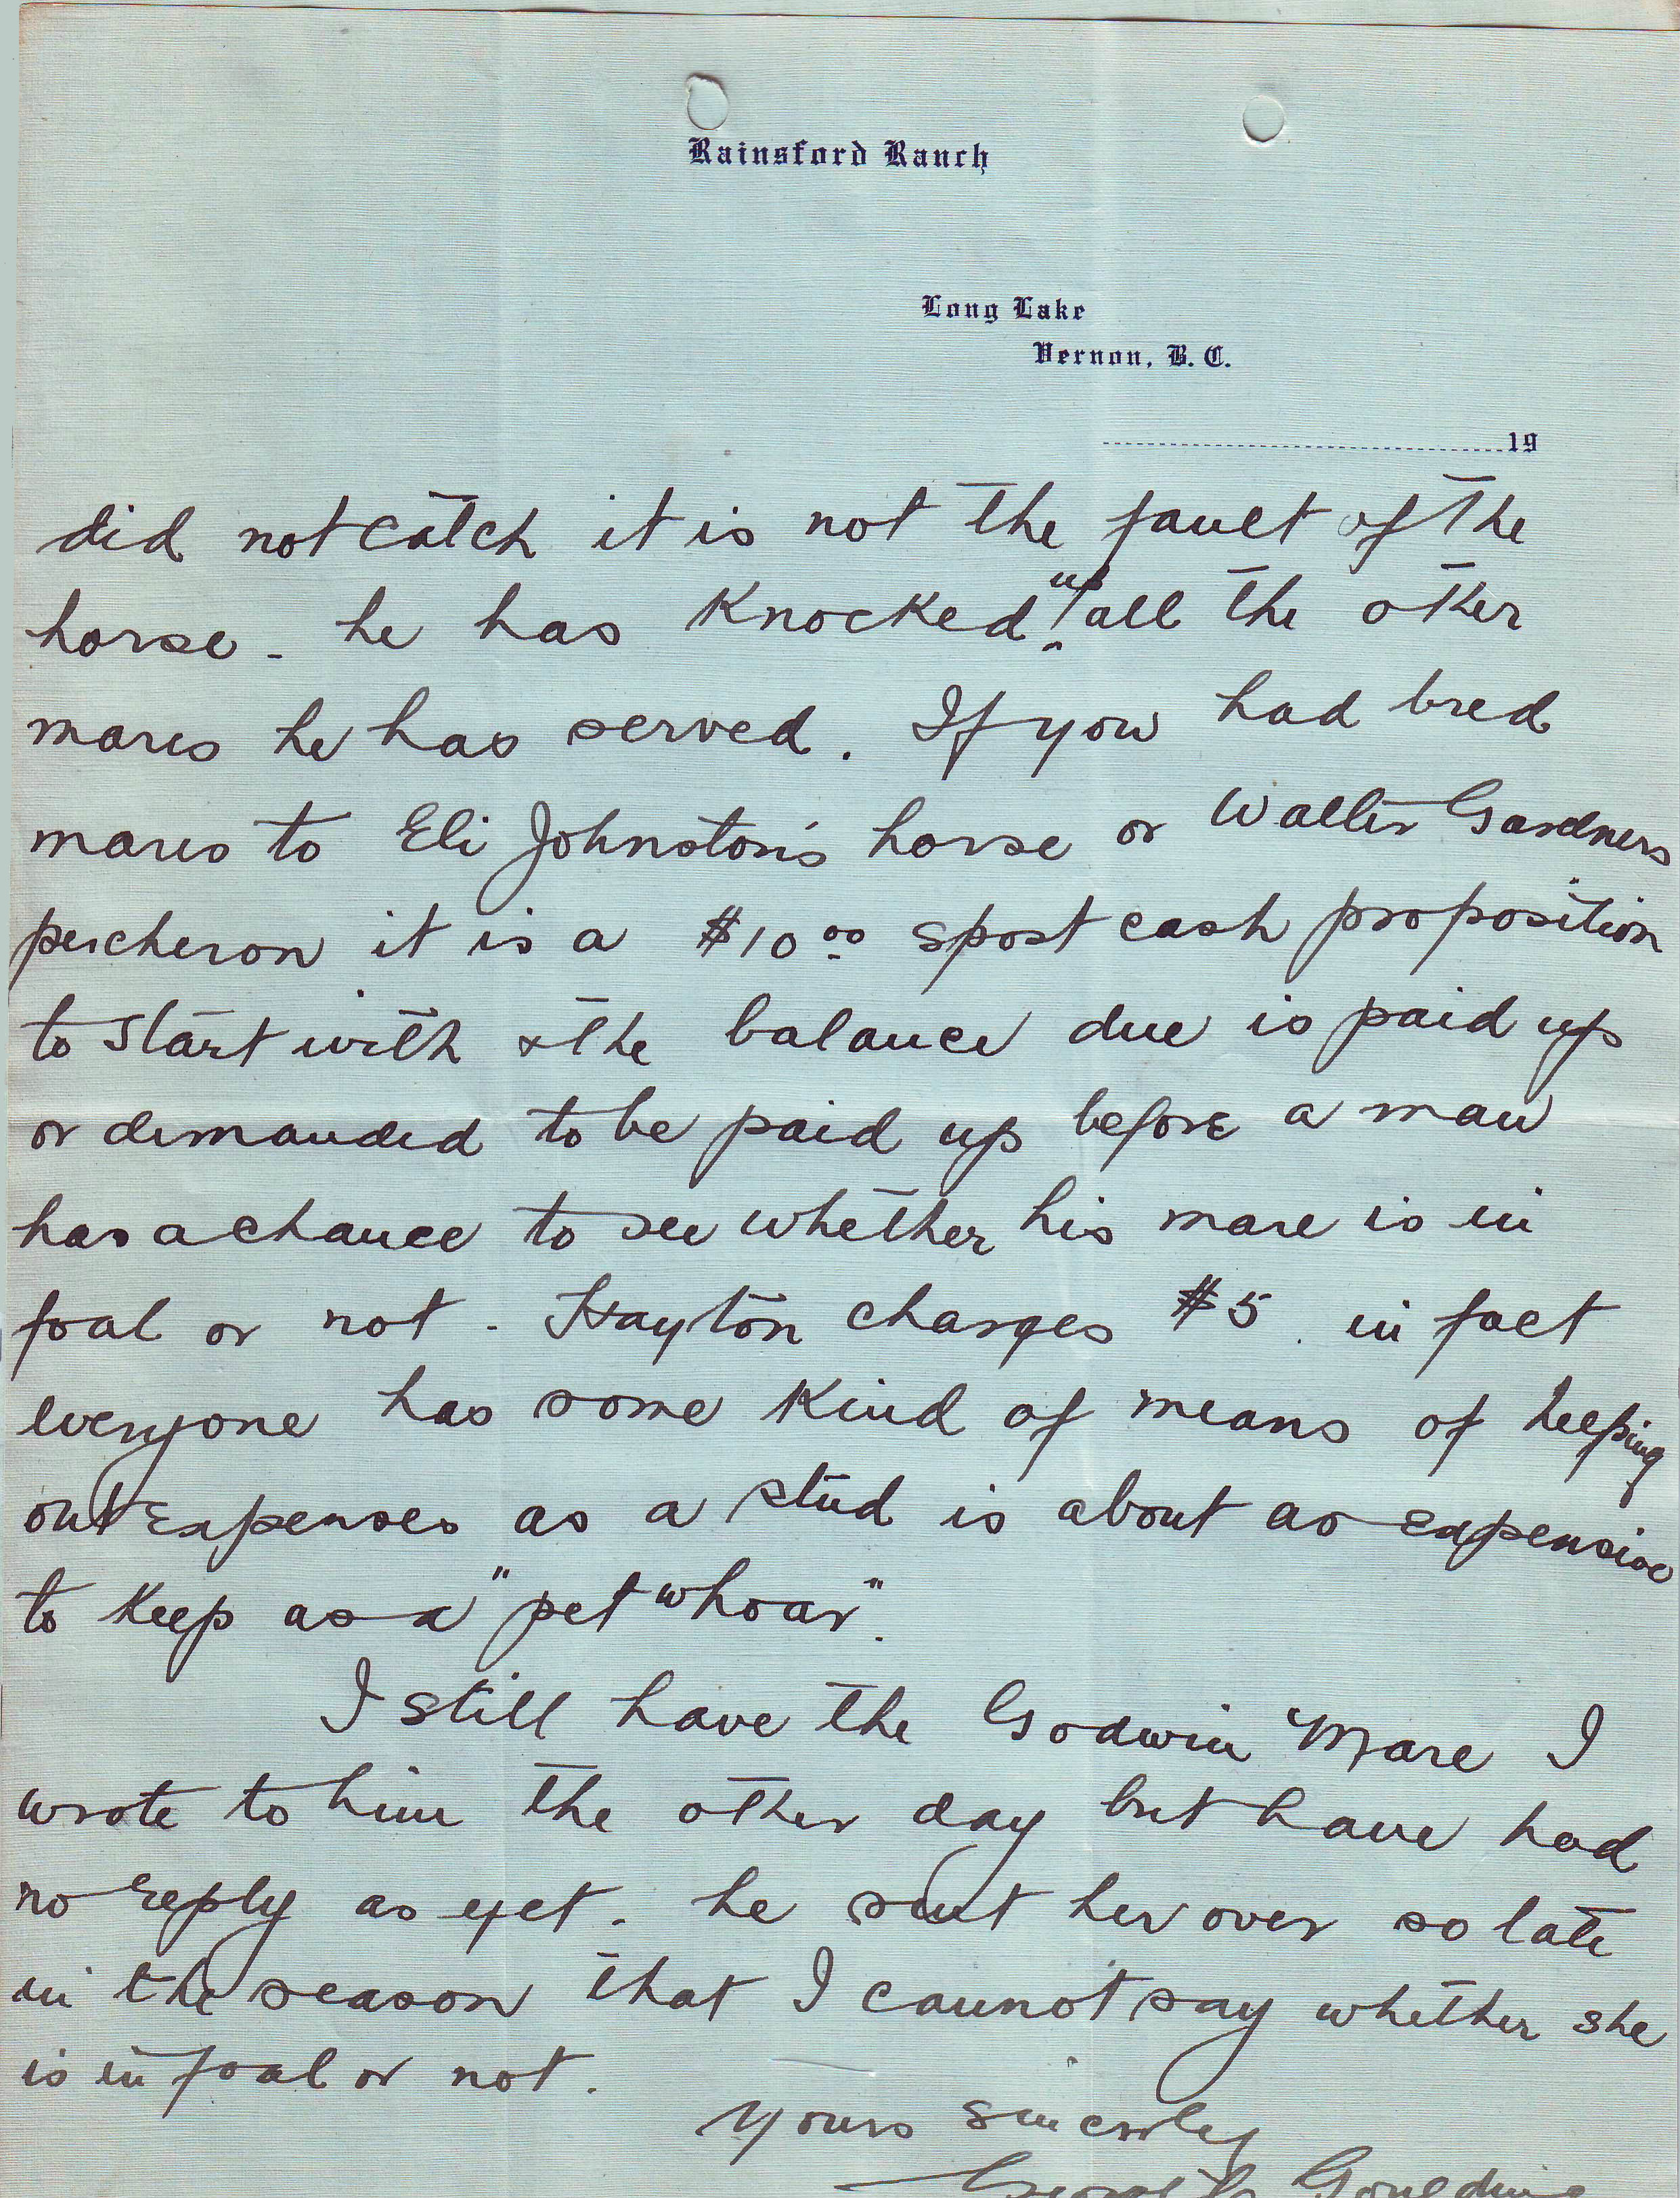 Rainsford Ranch
Long Lake
Vernon, B. C.
19
did not catch it is not the fault of the
horse - he has knocked "up" all the other
mares he has served. If you had bred
mares to Eli Johnston's horse or Walter Gardners
percheron it is a $10.00 spost cash proposition
to start with & the balance due is paid up
or demanded to be paid up before a man
has a chance to see whether his mare is in
foal or not - Hayton charges $5. in fact
everyone has some kind of means of keeping
out expenses as a stud is about as expensive
to keep as a "pet whoar".
I still have the Godwin Mare I
wrote to him the other day but have had
no reply as yet. he sent her over so late
in the season that I cannot say whether she
is in foal or not.
Yours sincerely
Goulding